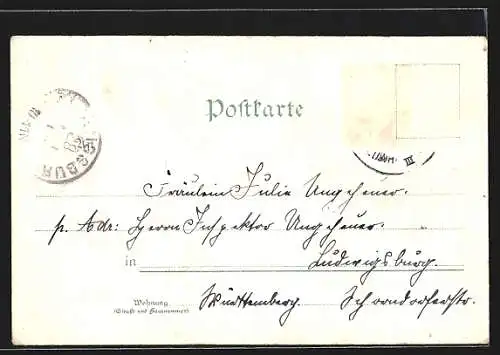 Postkarte
Fräulein Julie Ungeheuer.
p. Adr: Herrn Inspektor Ungeheuer.
in Ludwigsburg.
Wohnung
(Straße und Hausnummer)
Württemberg. Schorndorferstr.